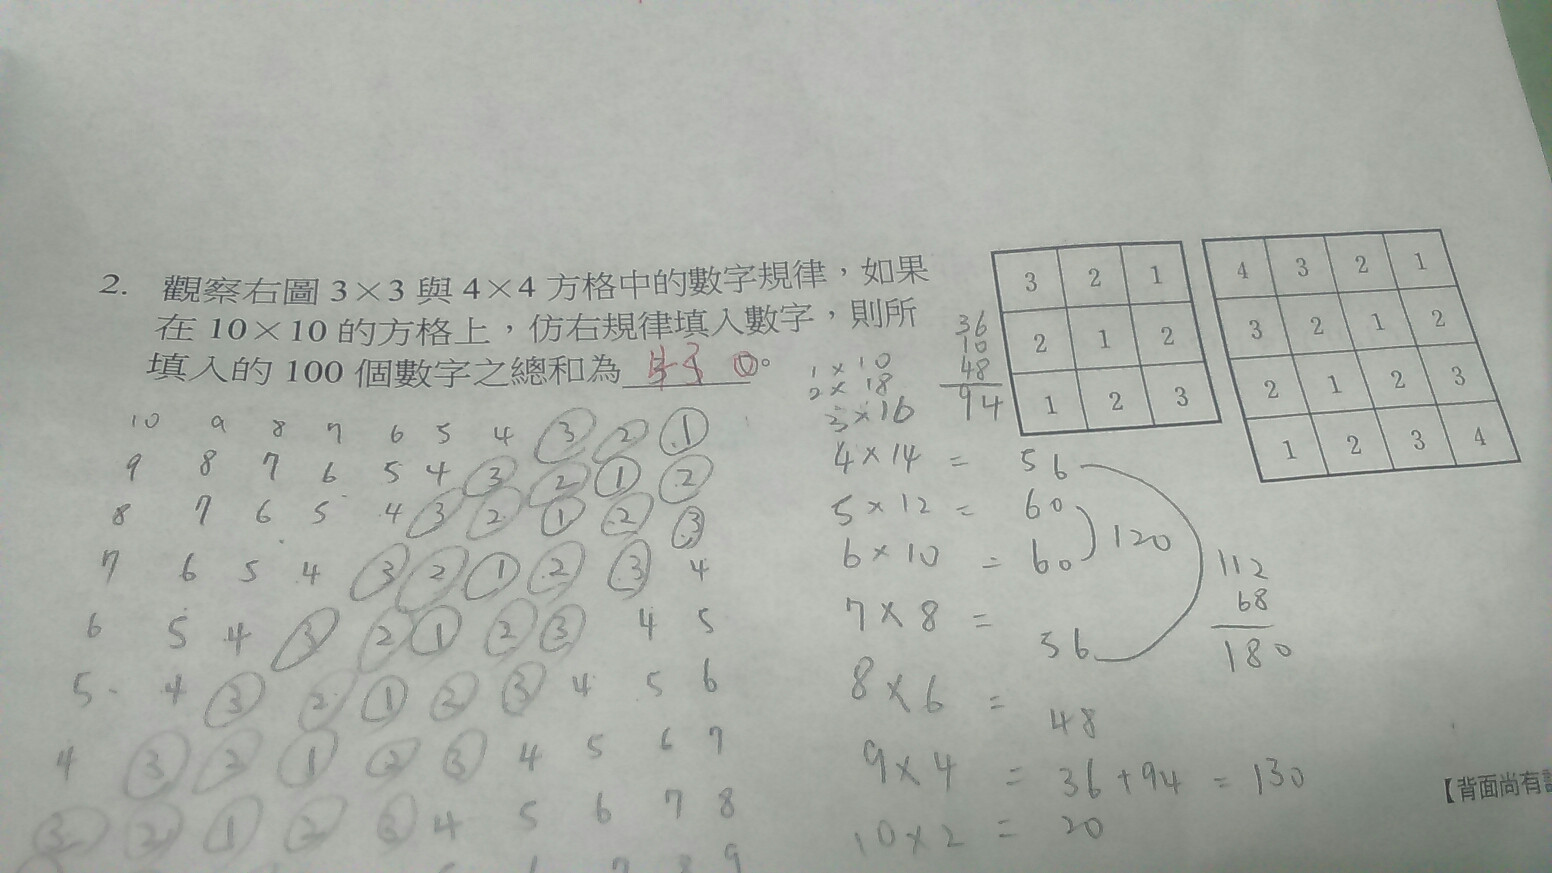 2. 觀察右圖 3×3 與 4×4 方格中的數字規律，如果
在 10×10 的方格上，仿右規律填入數字，則所
填入的 100 個數字之總和為 430。
3 2 1
2 1 2
1 2 3
4 3 2 1
3 2 1 2
2 1 2 3
1 2 3 4
36
10
48
94
10 9 8 7 6 5 4 3 2 1
9 8 7 6 5 4 3 2 1 2
8 7 6 5 4 3 2 1 2 3
7 6 5 4 3 2 1 2 3 4
6 5 4 3 2 1 2 3 4 5
5 4 3 2 1 2 3 4 5 6
4 3 2 1 2 3 4 5 6 7
3 2 1 2 3 4 5 6 7 8
7 8 9
1×10
2×18
3×16
4×14 = 56
5×12 = 60
6×10 = 60
120
7×8 = 56
8×6 = 48
9×4 = 36+94 = 130
10×2 = 20
112
68
180
【背面尚有